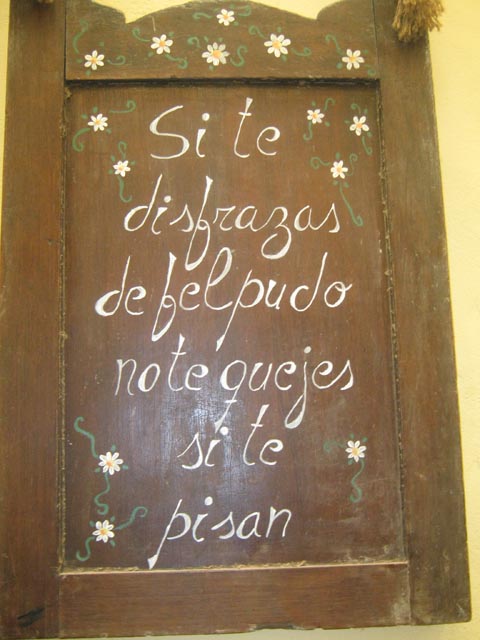 Si te
disfrazas
de felpudo
no te quejes
si te
pisan